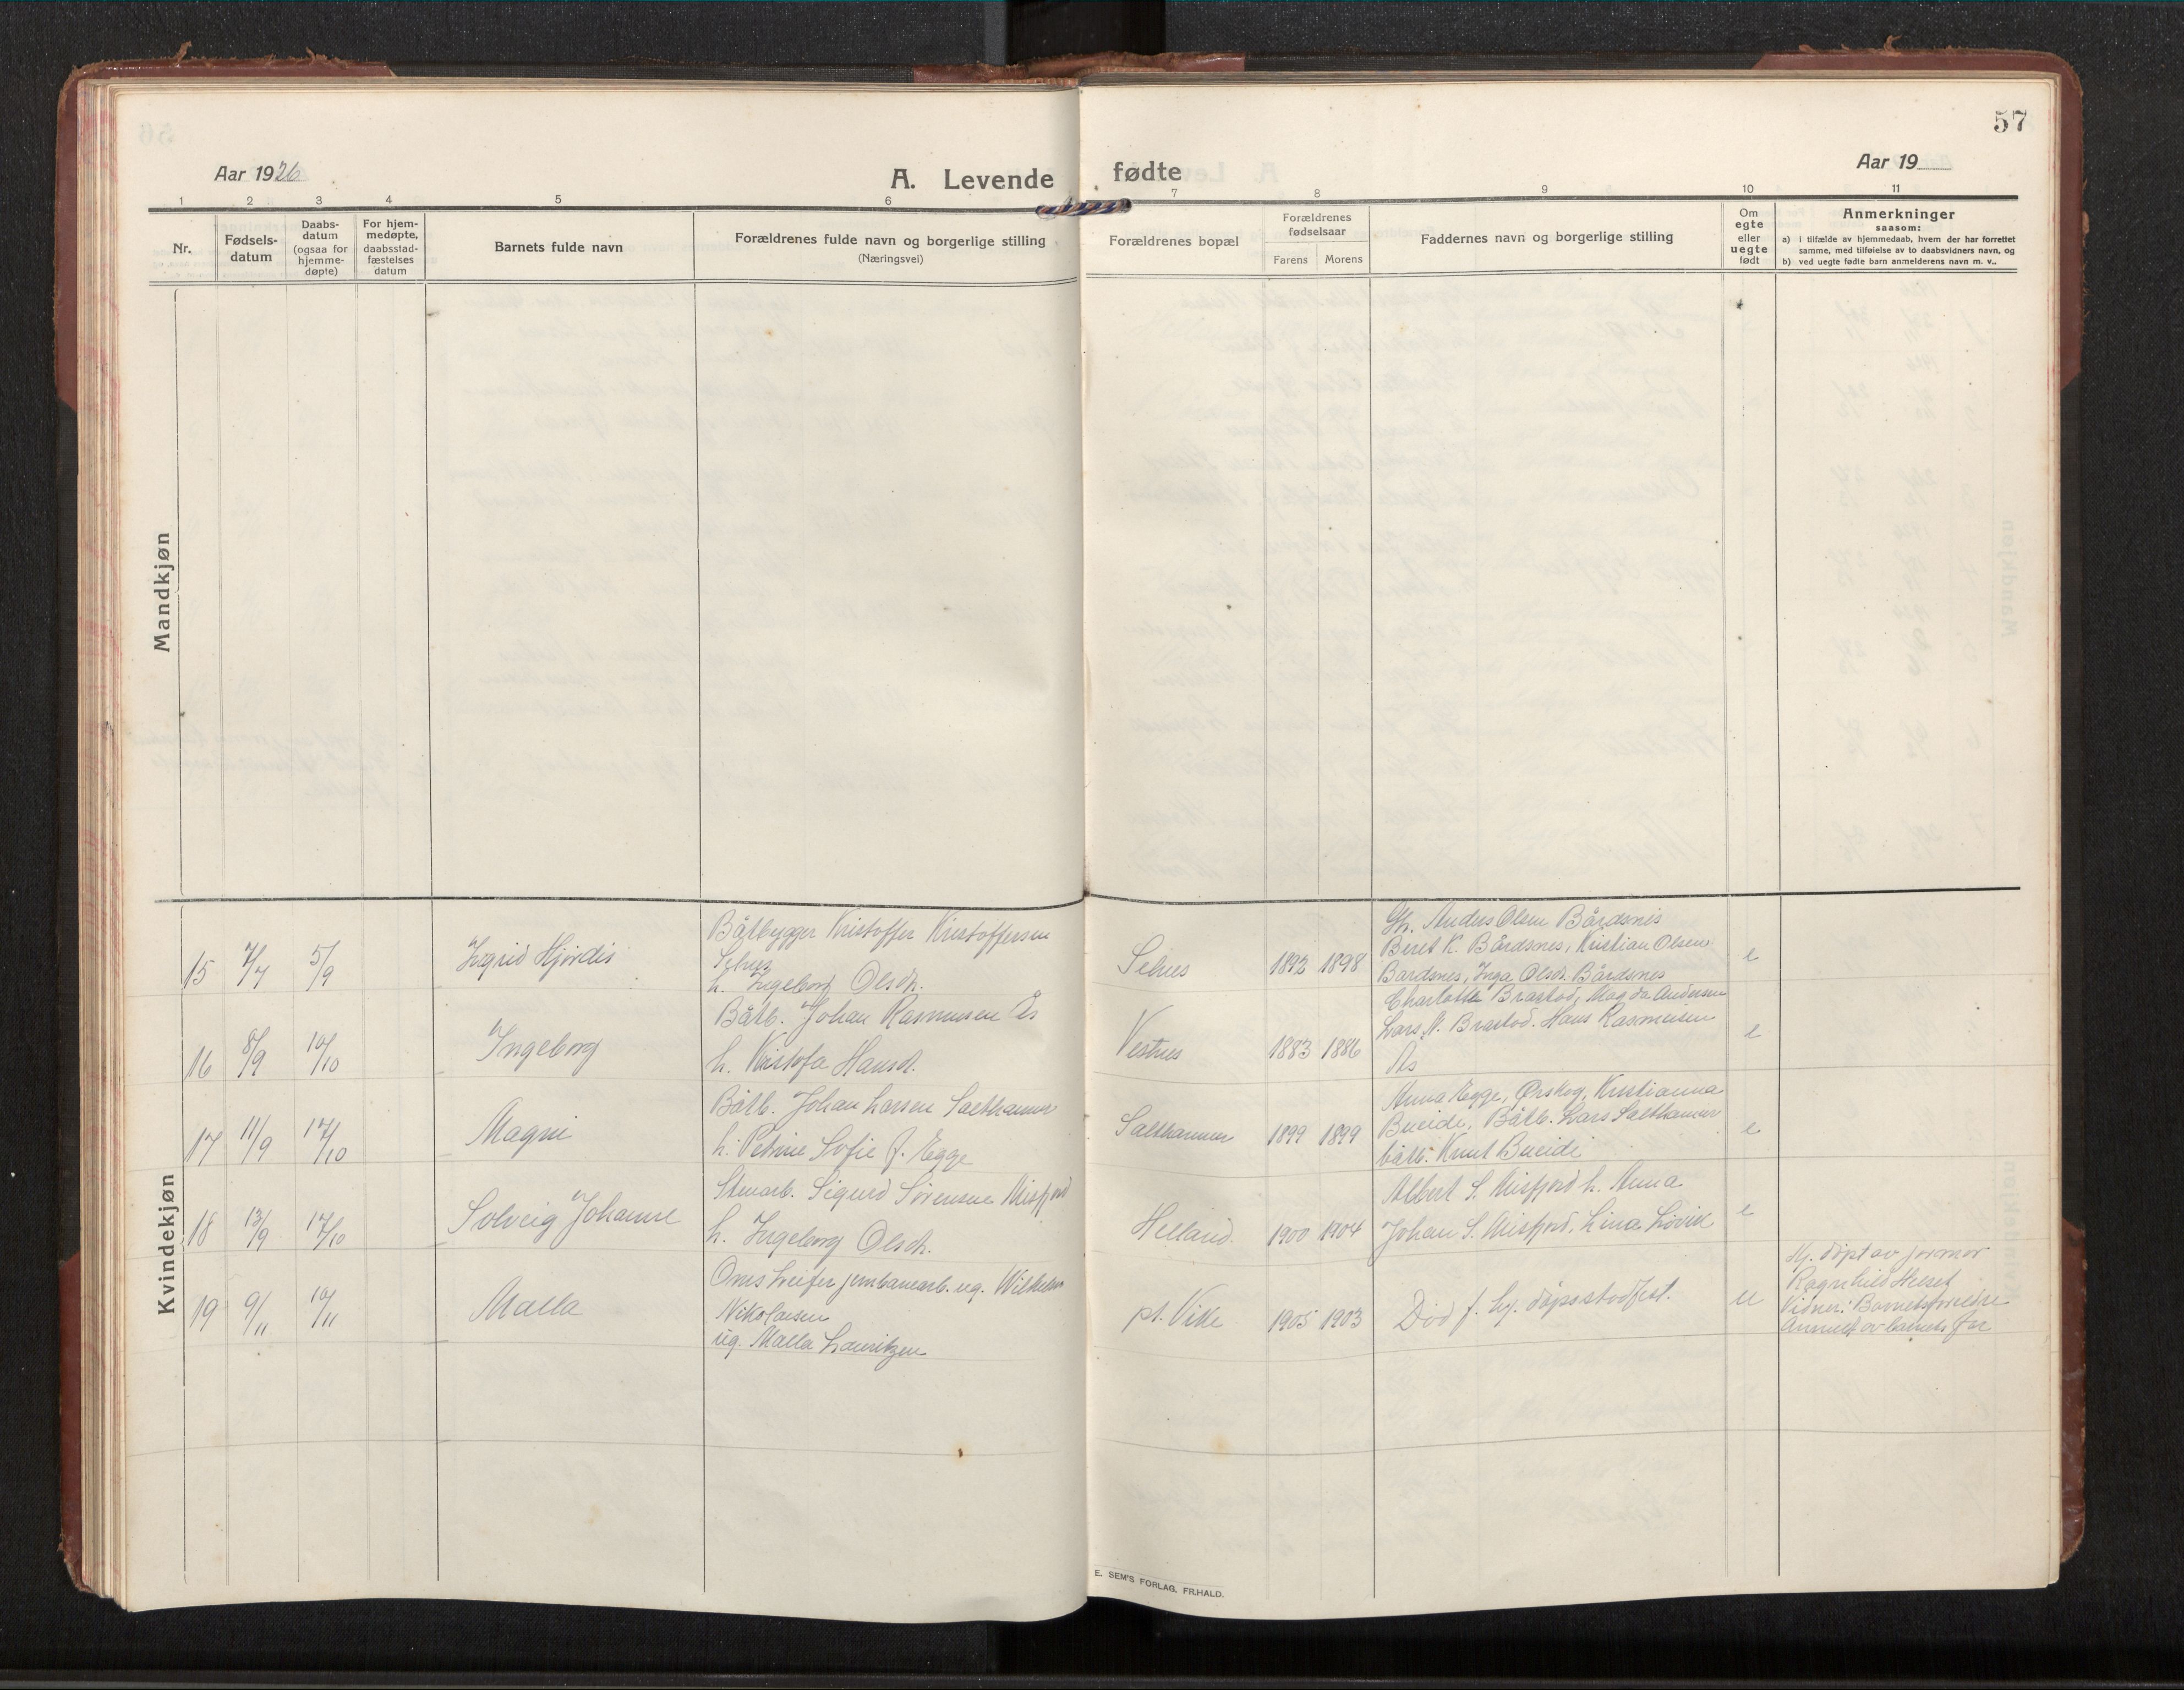 57
Aar 1926
A. Levende fødte
Aar 19
1 2 3 4 5 6 7 8 9 10 11
Nr.
Fødsels-
datum
Daabs-
datum
(ogsaa for
hjemme-
døpte)
For hjem-
medøpte,
daabsstad-
fæstelses
datum
Barnets fulde navn
Forældrenes fulde navn og borgerlige stilling
(Næringsvei)
Forældrenes bopæl
Forældrenes
fødselsaar
Farens Morens
Faddernes navn og borgerlige stilling
Om
egte
eller
uegte
født
Anmerkninger
saasom:
a) i tilfælde av hjemmedaab, hvem der har forrettet
samme, med tilføielse av to daabsvidners navn, og
b) ved uegte fødte barn anmelderens navn m. v..
Mandkjøn
Kvindekjøn
15 4/7 5/9
Ingrid Hjördis
Båtbygger Kristoffer Kristoffersen
Selnes
h. Ingeborg Olsdt.
Selnes
1892 1898
Gb. Anders Olsen Bårdsnes
Beret K. Bårdsnes, Kristian Olsen
Bardsnes, Inga Olsdt. Bårdsnes
e
16 8/9 10/10
Ingeborg
Båtb. Johan Rasmusen Ås
h. Kristofa Hansdt.
Vestnes
1883 1886
Charlotte Brastad, Magda Andersen
Lars N. Brastad. Hans Rasmusen
Ås
e
17 11/9 17/10
Magni
Båtb. Johan Larsen Salthammer
h. Petrine Sofie f. Egge
Salthammer
1899 1899
Anna Egge, Ørskog, Kristianna
Bueide, Båtb. Lars Salthammer
båtb. Knut Bueide
e
18 13/9 17/10
Solveig Johanne
Stenarb. Sigurd Sørensen Misfjord
h. Ingeborg Olsdt.
Helland.
1900 1904
Albert S. Misfjord h. Anna
Johan S. Misfjord, Lina Løvik
e
19 9/11 10/11
Malla
jernbanearb. ug. Wilhelm
Nikolaisen
ug. Malla Lauritzen
pt. Vike
1905 1903
Død f. hj. dåpsstadfest.
u
Hj. döpt av jormor
Ragnhild Helset
Vidner: Barnets foreldre
Anmeldt av barnets far
E. SEM'S FORLAG, FR.HALD.